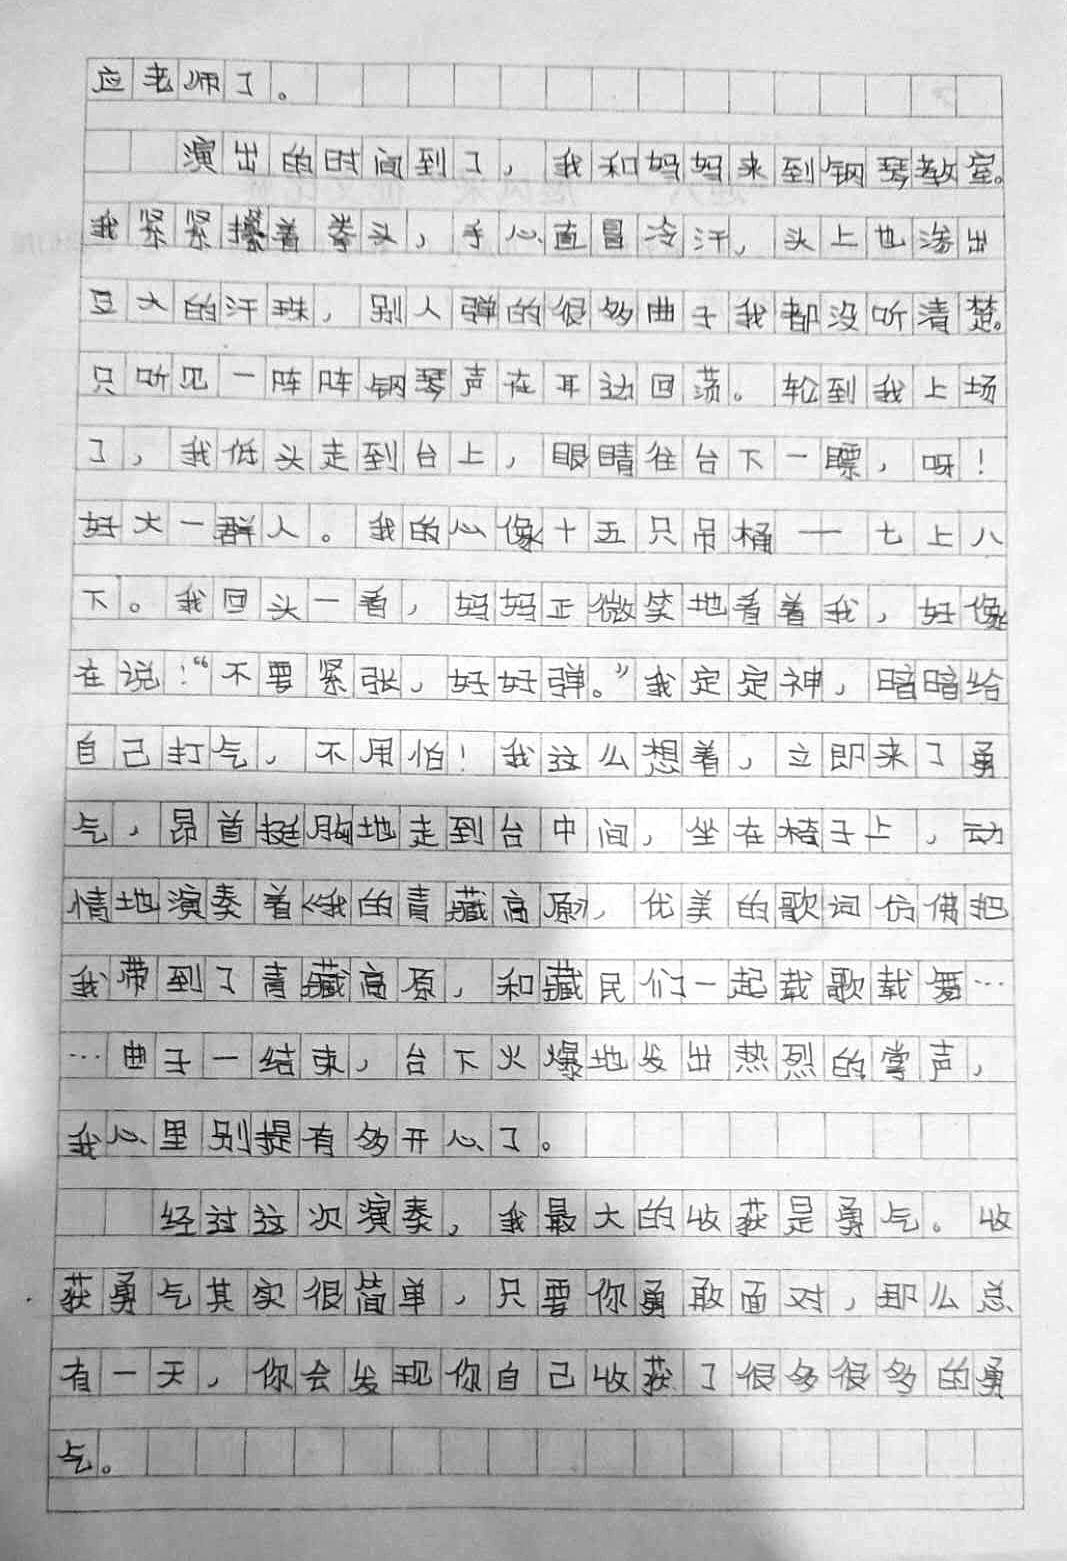 应老师了。
演出的时间到了，我和妈妈来到钢琴教室。
我紧紧攥着拳头，手心直冒冷汗，头上也渗出
豆大的汗珠，别人弹的很多曲子我都没听清楚。
只听见一阵阵钢琴声在耳边回荡。轮到我上场
了，我低头走到台上，眼睛往台下一瞟，呀！
好大一群人。我的心像十五只吊桶——七上八
下。我回头一看，妈妈正微笑地看着我，好像
在说：“不要紧张，好好弹。”我定定神，暗暗给
自己打气，不用怕！我这么想着，立即来了勇
气，昂首挺胸地走到台中间，坐在椅子上，动
情地演奏着《我的青藏高原》，优美的歌词仿佛把
我带到了青藏高原，和藏民们一起载歌载舞…
…曲子一结束，台下火爆地发出热烈的掌声，
我心里别提有多开心了。
经过这次演奏，我最大的收获是勇气。收
获勇气其实很简单，只要你勇敢面对，那么总
有一天，你会发现你自己收获了很多很多的勇
气。